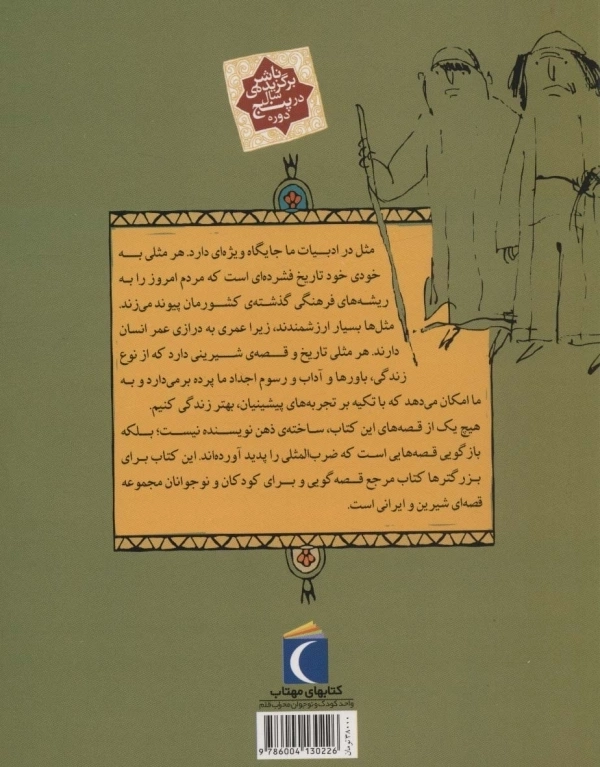 ناشر
برگزیده‌ی
سال
در پنج
دوره
مثل در ادبیات ما جایگاه ویژه‌ای دارد. هر مثلی به
خودی خود تاریخ فشرده‌ای است که مردم امروز را به
ریشه‌های فرهنگی گذشته‌ی کشورمان پیوند می‌زند.
مثل‌ها بسیار ارزشمندند، زیرا عمری به درازی عمر انسان
دارند. هر مثلی تاریخ و قصه‌ی شیرینی دارد که از نوع
زندگی، باورها و آداب و رسوم اجداد ما پرده برمی‌دارد و به
ما امکان می‌دهد که با تکیه بر تجربه‌های پیشینیان، بهتر زندگی کنیم.
هیچ یک از قصه‌های این کتاب، ساخته‌ی ذهن نویسنده نیست؛ بلکه
بازگویی قصه‌هایی است که ضرب‌المثلی را پدید آورده‌اند. این کتاب برای
بزرگترها کتاب مرجع قصه‌گویی و برای کودکان و نوجوانان مجموعه
قصه‌ای شیرین و ایرانی است.
کتابهای مهتاب
واحد کودک و نوجوان محراب قلم
۳۸۰۰۰ تومان
9 786004 130226